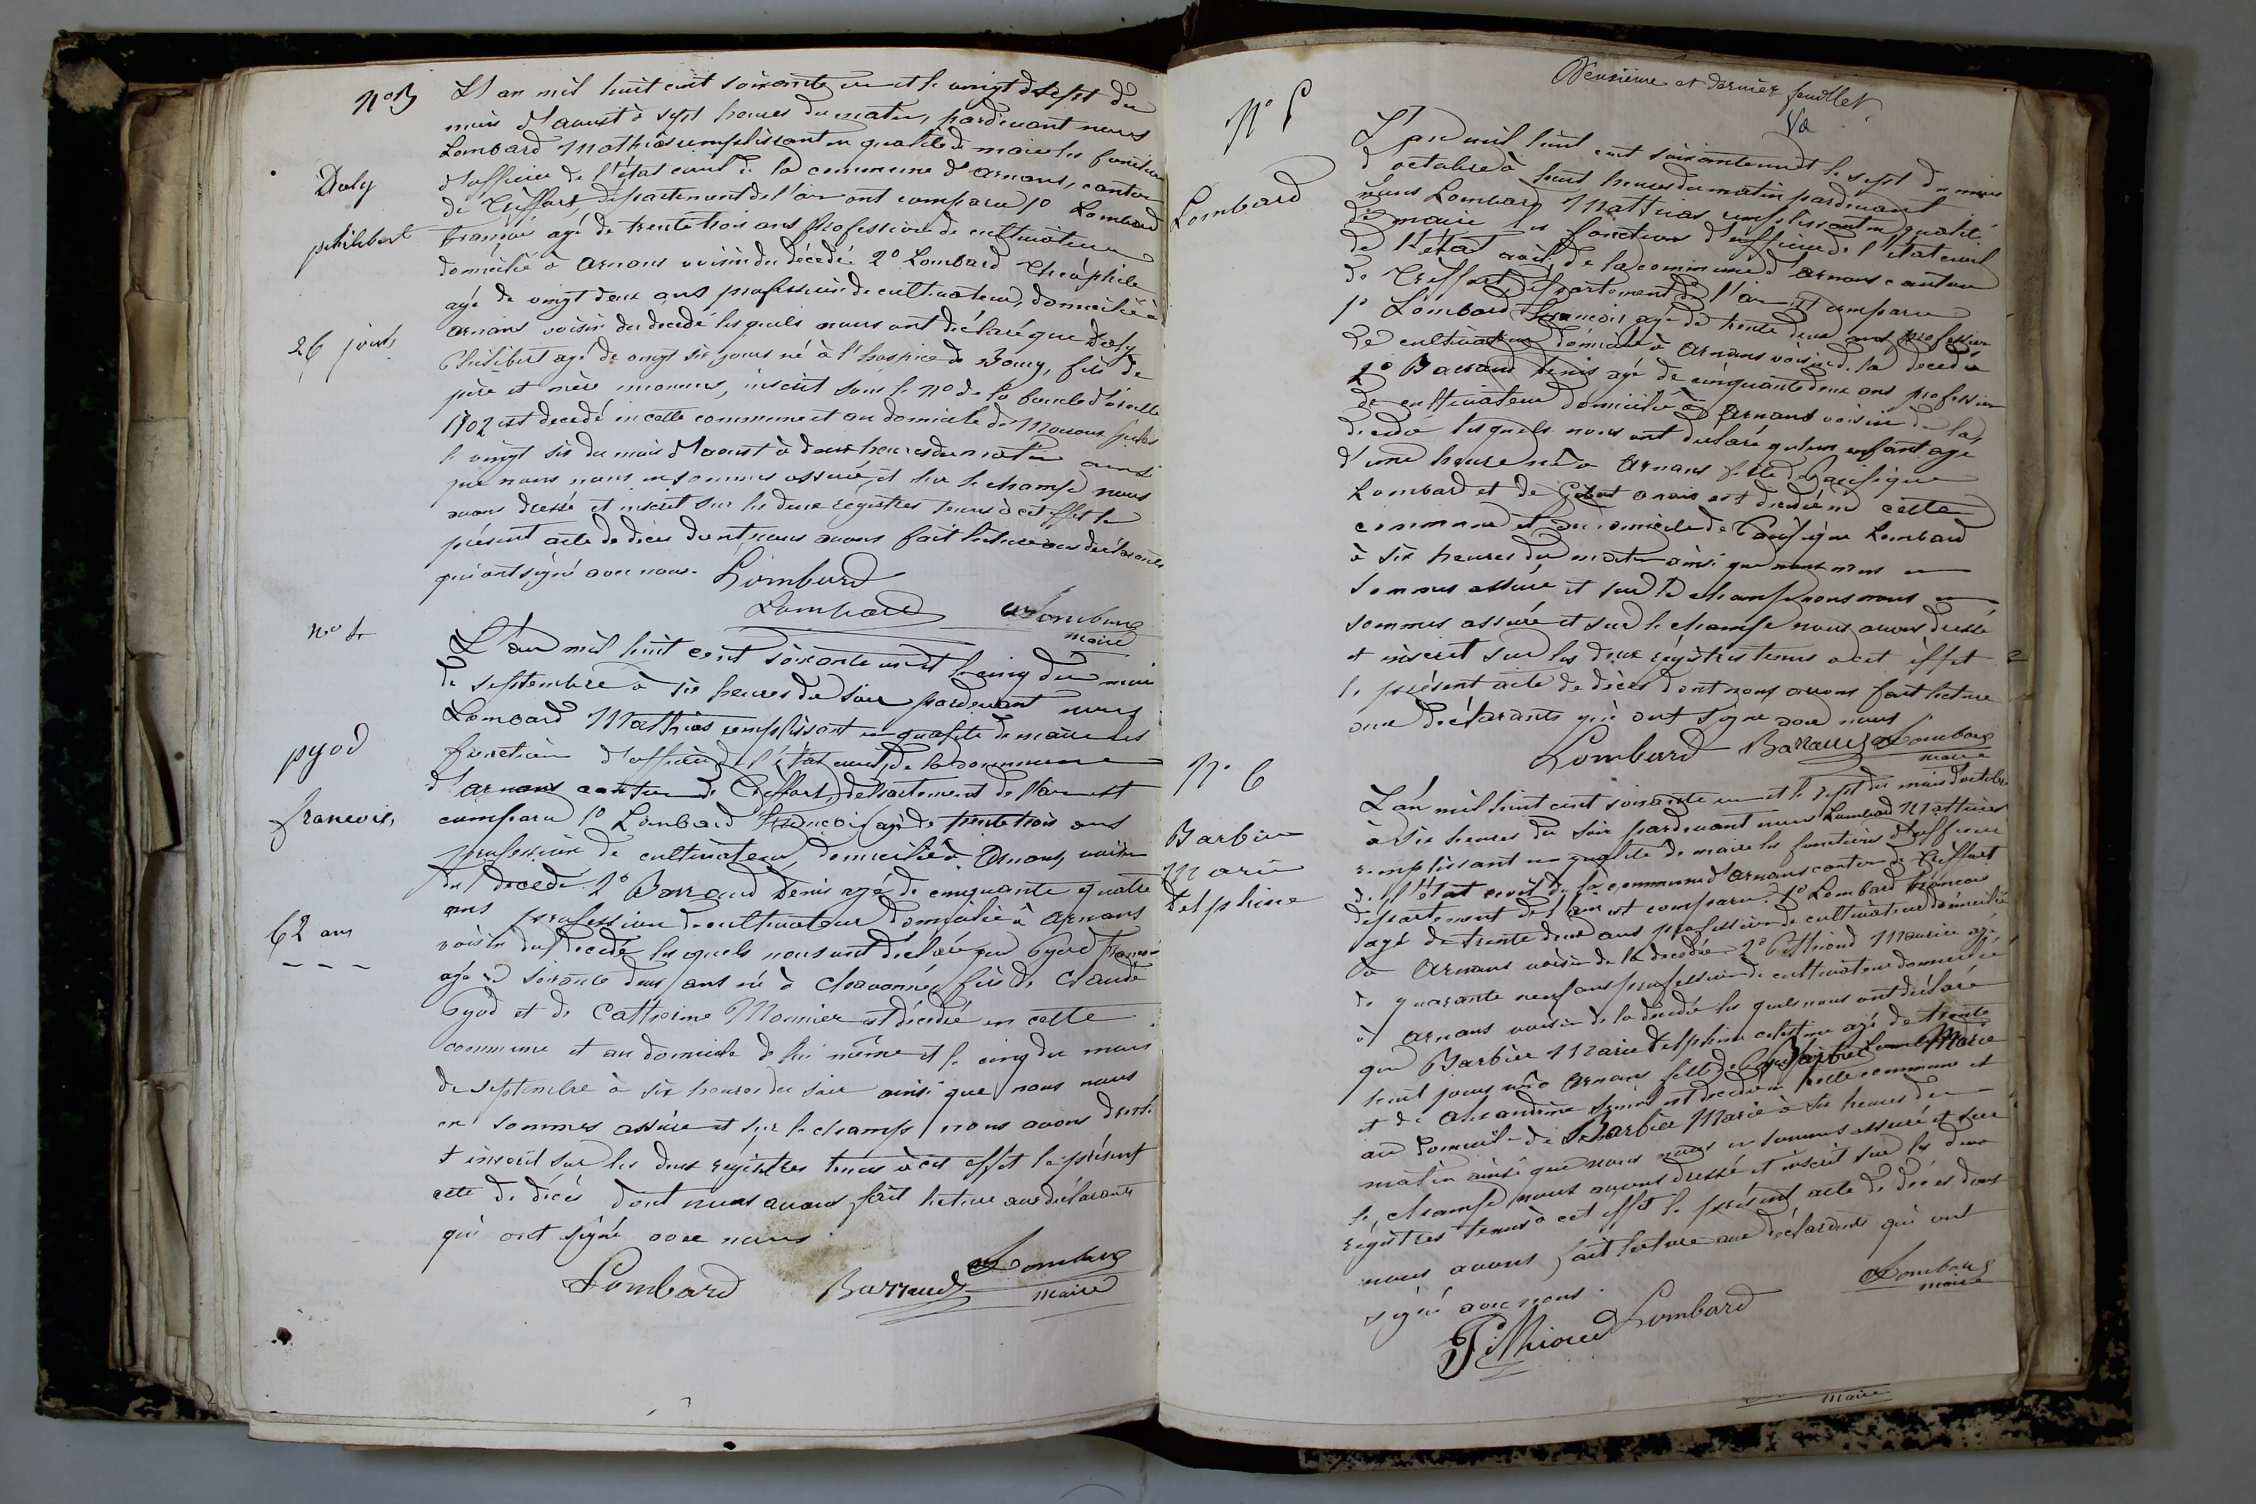 N° 3
L'an mil huit cent soixante un et le vingt sept du
mois d'aoust à sept heures du matin, pardevant nous
Lombard Mathias remplissant en qualité de maire les fonctions
d'officier de l'état civil de la commune d'Arnans, canton
de Treffort, département de l'ain ont comparu 1° Lombard
françois agé de trente trois ans profession de cultivateur
domicilié à Arnans voisin du décédé 2° Lombard Théophile
agé de vingt deux ans profession de cultivateur, domicilié à
Arnans voisin du decedé lesquels nous ont déclaré que Doly
Philibert agé de vingt six jours né à l'hospice de Bourg, fils de
père et mère inconnus, inscrit sous le N° de la boucle d'oreille
1702 est decedé en cette commune et au domicile de
le vingt six du mois d'aoust à deux heures du matin ainsi
que nous nous en sommes assuré, et sur le champ nous
avons dressé et inscrit sur les deux régistres tenus à cet effet le
présent acte de décès dont nous avons fait lecture aux déclarants
qui ont signé avec nous.
Lombard
Lombard Lombard
maire
Doly
philibert
26 jours
N° 4
L'an mil huit cent soixante un et le cinq du mois
de septembre à six heures du soir pardevant nous
Lombard Mathias remplissant en qualité de maire les
fonction d'officier de l'état civil, de la commune
d'Arnans canton de Treffort, département de l'ain ont
comparu 1° Lombard françois agé de trente trois ans
profession de cultivateur, domicilié à Arnans, voisin
du décédé. 2° Barraud Denis agé de cinquante quatre
ans profession de cultivateur domicilié à Arnans
voisin du décédé lesquels nous ont déclaré que Pyod François
agé de soixante deux ans né à Chavannes fils de Claude
Pyod et de Catherine Monnier est décédé en cette
commune et au domicile de lui même et le cinq du mois
de septembre à six heures du soir ainsi que nous nous
en sommes assuré et sur le champ nous avons dressé
et inscrit sur les deux registres tenus à cet effet le présent
acte de décès dont nous avons fait lecture aux déclarants
qui ont signé avec nous
Lombard Barraud Lombard
maire
pyod
francois,
62 ans
Deuxième et dernier feuillet
N° 5
Lombard
L'an mil huit cent soixante un et le sept du mois
d'octobre à huit heures du matin pardevant
nous Lombard Matthias remplissant en qualité
de maire les fonctions d'officier de l'état civil
de l'état civil, de la commune d'Arnans canton
de Treffort, département de l'ain ont comparu
1° Lombard francois agé de trente deux ans profession
de cultivateur domicilié à Arnans voisin de la decedé
2° Barraud Denis agé de cinquante deux ans profession
de cultivateur domicilié à Arnans voisin de la
decedé lesquels nous ont declaré qu'un enfant agé
d'une heure né à Arnans fille de Pacifique
Lombard et de est decedé en cette
commune et au domicile de Pacifique Lombard
à six heures du matin ainsi que nous nous en
sommes assuré et sur le champ nous nous en
sommes assuré et sur le champ nous avons dressé
et inscrit sur les deux régistres tenus a cet effet
le présent acte de décès dont nous avons fait lecture
aux déclarants qui ont signé avec nous
Lombard Barraud Lombard
maire
N° 6
Barbier
Marie
Delphine
L'an mil huit cent soixante un et le sept du mois d'octobre
à six heures du soir pardevant nous Lombard Matthias
remplissant en qualité de maire les fonctions d'officier
de l'état civil de la commune d'Arnans canton de Treffort
département de l'ain ont comparu 1° Lombard francois
agé de trente deux ans profession de cultivateur domicilié
à Arnans voisin de la decedée 2° Pithioud Maurice agé
de quarante neuf ans profession de cultivateur domicilié
à Arnans voisin de la decedée les quels nous ont déclaré
que Barbier Marie Delphine celestine agé de trente
huit jours née à Arnans fille de Marie
et de alexandrine est decedée en cette commune et
au domicile de Barbier Marie à six heures du
matin ainsi que nous nous en sommes assuré et sur
le champ nous avons dressé et inscrit sur les deux
régistres tenus à cet effet le présent acte de décès dont
nous avons fait lecture aux déclarants qui ont
signé avec nous.
Pithioud Lombard Lombard
maire
maire